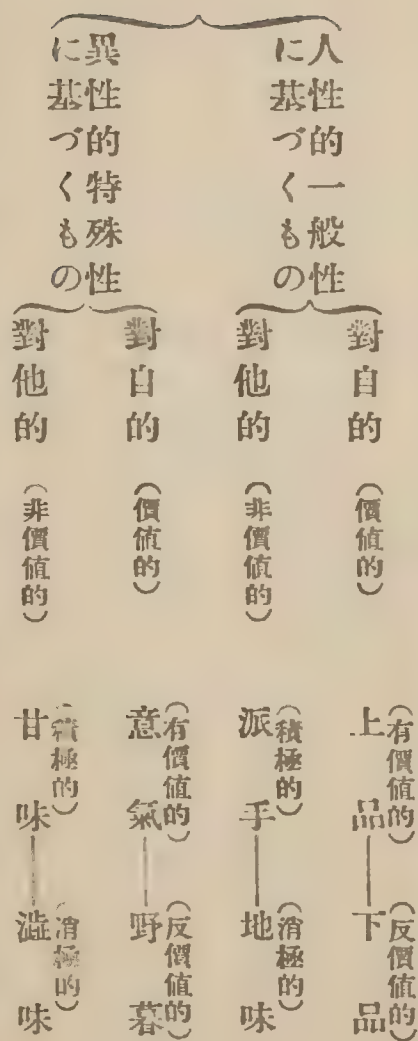 人性的一般性
に基づくもの
對自的
(價値的)
(有價値的)
上品——下品
(反價値的)
對他的
(非價値的)
(積極的)
派手——地味
(消極的)
異性的特殊性
に基づくもの
對自的
(價値的)
(有價値的)
意氣——野暮
(反價値的)
對他的
(非價値的)
(積極的)
甘味——澁味
(消極的)